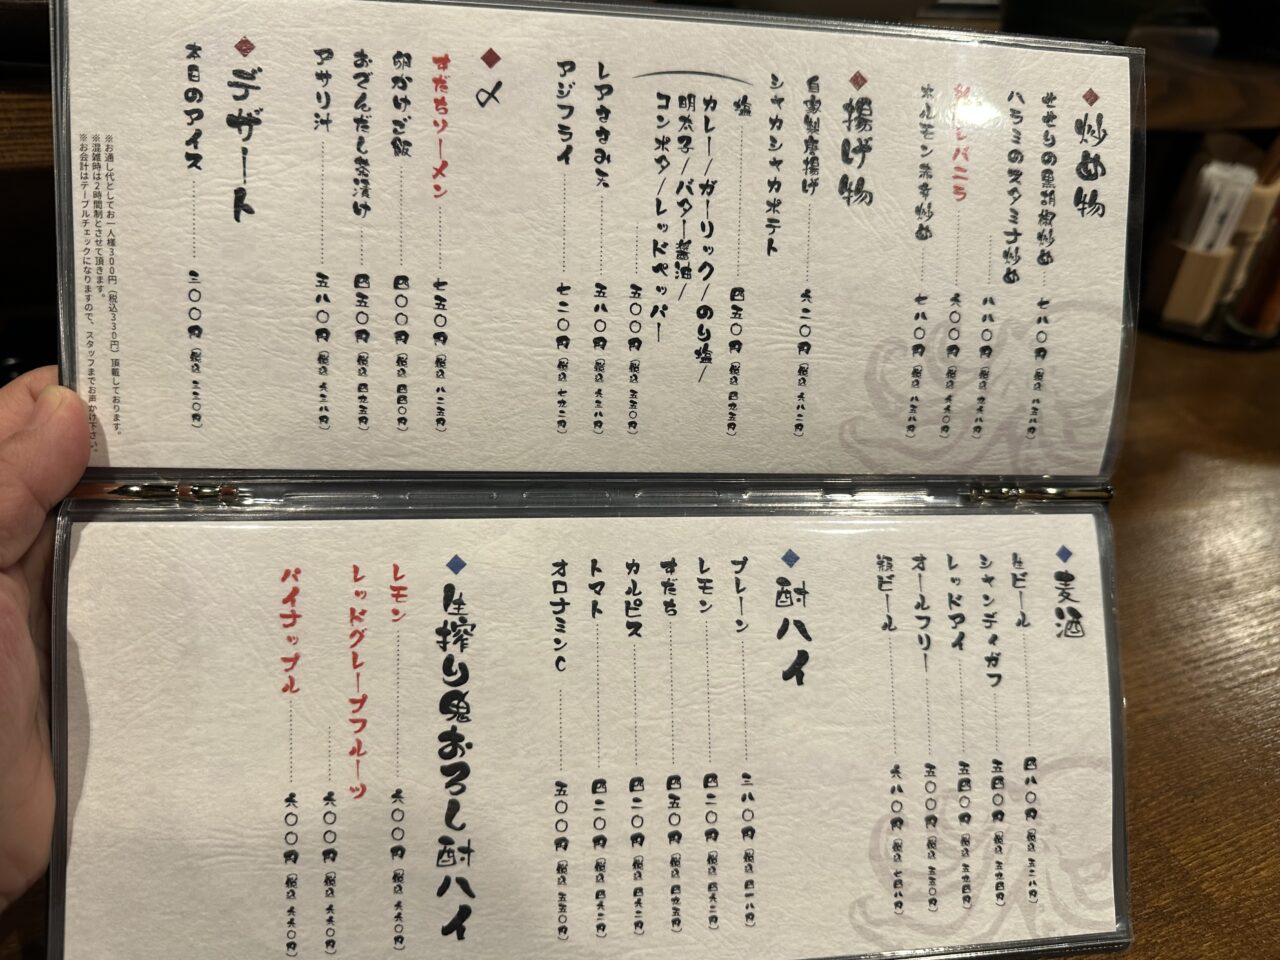 ◆炒め物
せせりの黒胡椒炒め 七八〇円(税込 八五八円)
ハラミのスタミナ炒め
八八〇円(税込 九六八円)
レバニラ 六〇〇円(税込 六六〇円)
ホルモン 辛炒め 七八〇円(税込 八五八円)
◆揚げ物
自家製唐揚げ 六二〇円(税込 六八二円)
シャカシャカポテト
塩 四五〇円(税込 四九五円)
カレー/ガーリック/のり塩/
明太子/バター醤油/
コンポタ/レッドペッパー
五〇〇円(税込 五五〇円)
レアささみ天 五八〇円(税込 六三八円)
アジフライ 七二〇円(税込 七九二円)
◆〆
すだちソーメン 七五〇円(税込 八二五円)
卵かけご飯 四〇〇円(税込 四四〇円)
おでんだし茶漬け 四五〇円(税込 四九五円)
アサリ汁 五八〇円(税込 六三八円)
◆デザート
本日のアイス 三〇〇円(税込 三三〇円)
※お通し代としてお一人様300円(税込330円)頂戴しております。
※混雑時は2時間制とさせて頂きます。
※お会計はテーブルチェックになりますので、スタッフまでお声かけ下さい。
◆麦酒
生ビール 四八〇円(税込 五二八円)
シャンディガフ 五四〇円(税込 五九四円)
レッドアイ 五四〇円(税込 五九四円)
オールフリー 五〇〇円(税込 五五〇円)
瓶ビール 六八〇円(税込 七四八円)
◆酎ハイ
プレーン 三八〇円(税込 四一八円)
レモン 四二〇円(税込 四六二円)
すだち 四五〇円(税込 四九五円)
カルピス 四二〇円(税込 四六二円)
トマト 四二〇円(税込 四六二円)
オロナミンC 五〇〇円(税込 五五〇円)
◆生搾り鬼おろし酎ハイ
レモン 六〇〇円(税込 六六〇円)
レッドグレープフルーツ
六〇〇円(税込 六六〇円)
パイナップル 六〇〇円(税込 六六〇円)